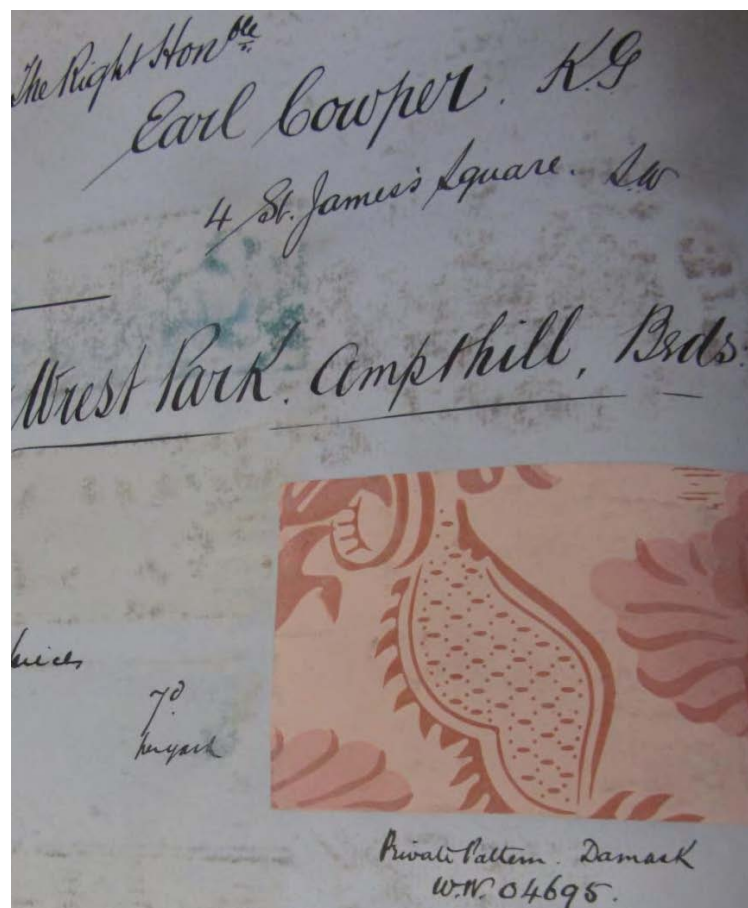 The Right Honble
Earl Cowper. K.G
4 St. James's Square. S.W
Wrest Park. Ampthill, Beds:
7d
per yard
Private Pattern. Damask
W.N. 04695.